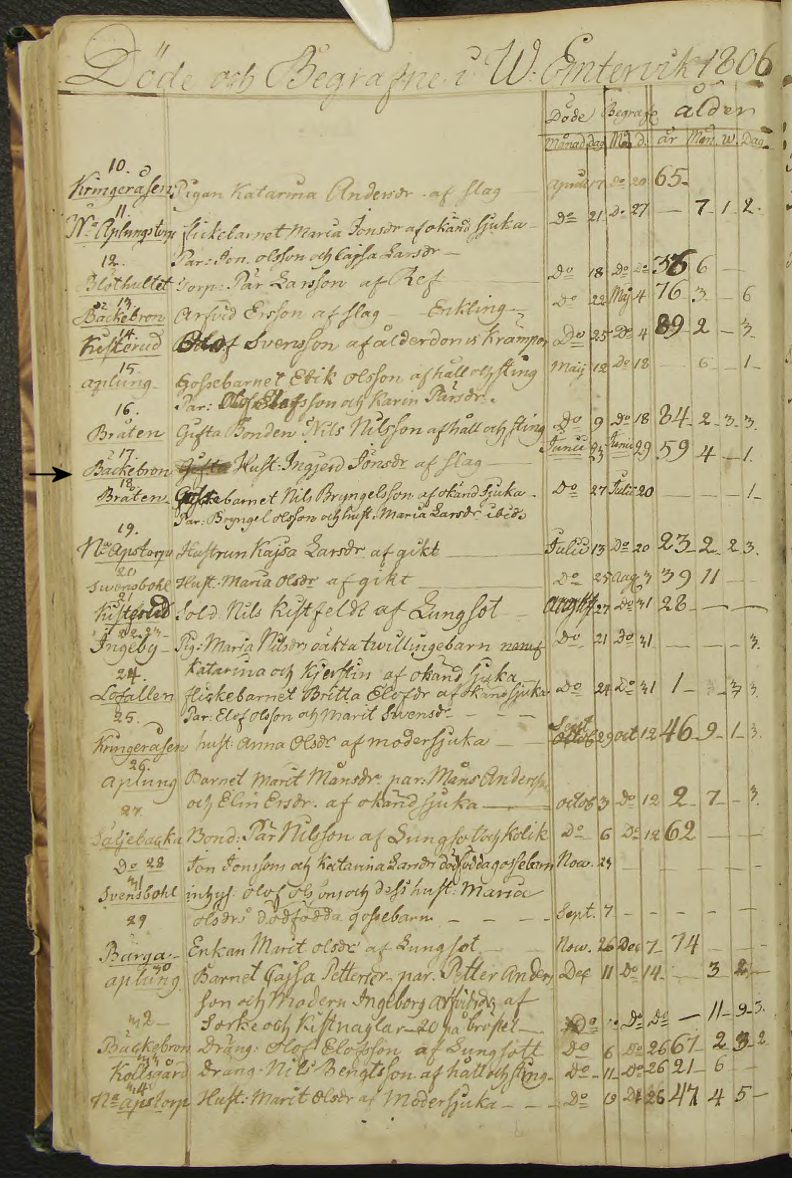 Döde och Begrafne i W. Emtervik 1806
Döde Begrafn ålder
Månad Dag Mån. d. år Mån. w. Dag.
10.
Kringeråsen Pigan Katarina Andersdr af slag April 17 Do 20 65
11.
Na Aplungstorp flickebarnet Maria Jonsdr af okänd sjuka Do 21 Do 27 — 7 1 2
Par: Jon Olsson och Cajsa Larsdr
12.
Blothultet Torp: Pär Larsson af Ref Do 18 Do Do 36 6 —
13.
Bäckebron Arfvid Ersson af slag — Enkling Do 22 Maj 4 76 3 — 6
14
Kisterud Olof Svensson af ålderdoms Krämpor Do 25 Do 4 89 2 — 3
15
Aplung Gossebarnet Erik Olsson af håll och sting Maij 12 Do 18 — 6 — 1
Par: Olof Elofsson och Karin Pärsdr.
16.
Bråten Gifta Bonden Nils Nilsson af håll och sting Do 9 Do 18 84 2 3 3
17.
Bäckebron Hust: Ingjerd Jönsdr af slag Junii 23 Junii 29 59 4 — 1
18
Bråten Gossebarnet Nils Bryngelsson af okänd sjuka Do 27 Julii 20 — — — 1
Par: Bryngel Olsson och hust. Maria Larsdr ibid.
19.
Na Apstorp Hustrun Kajsa Larsdr af gikt Julii 13 Do 20 23 2 2 3
20
Svensbohl Hust: Maria Olsdr af gikt Do 25 Aug 3 39 11
21
Kisterud Sold. Nils Kistfeldt af Lungsot Augusti 27 Do 31 28 — —
22. 23
Ingeby Pig: Maria Nilsdrs oäkta twillingebarn Do 21 Do 31 — — — 3
Katarina och Kjerstin af okänd sjuka
24.
Lofallen flickebarnet Britta Elofdr af okänd sjuka Do 24 Do 31 1 — 3 3
Par: Elof Olsson och Marit Svensdr
25.
Kringeråsen hust: Anna Olsdr af modersjuka Sept 29 Oct 12 46 9 1 3
26.
Aplung Barnet Marit Månsdr. par. Måns Andersson
och Elin Ersdr. af okänd sjuka Octob 3 Do 12 2 7 — 3
27
Säljebacka Bond: Pär Nilsson af Lungsot och Kolik Do 6 Do 12 62
Do 28 Jon Jonssons och Katarina Larsdrs dödfödda gossebarn Nov. 24
Svensbohl inhys: Olof Olssons och dess hust: Maria
29 Olsdrs dödfödda gossebarn Sept. 7
Berga Enkan Marit Olsdr af Lungsot Nov. 26 Dec 7 74
30
Aplung Barnet Cajsa Pettersdr. par. Petter Anders Dec 11 Do 14 — 3 2
son och Modern Ingeborg Arfvidsdr af
Do Do Do — 11 9 3
Bäckebron Dräng: Olof Elofsson af Lungsott Do 6 Do 26 67 2 3 2
Kollsgård Dräng: Nils Bengtsson af håll och sting Do 11 Do 26 21 6 —
Na Apstorp Hust: Marit Olsdr af Modersjuka Do 19 Do 26 47 4 5